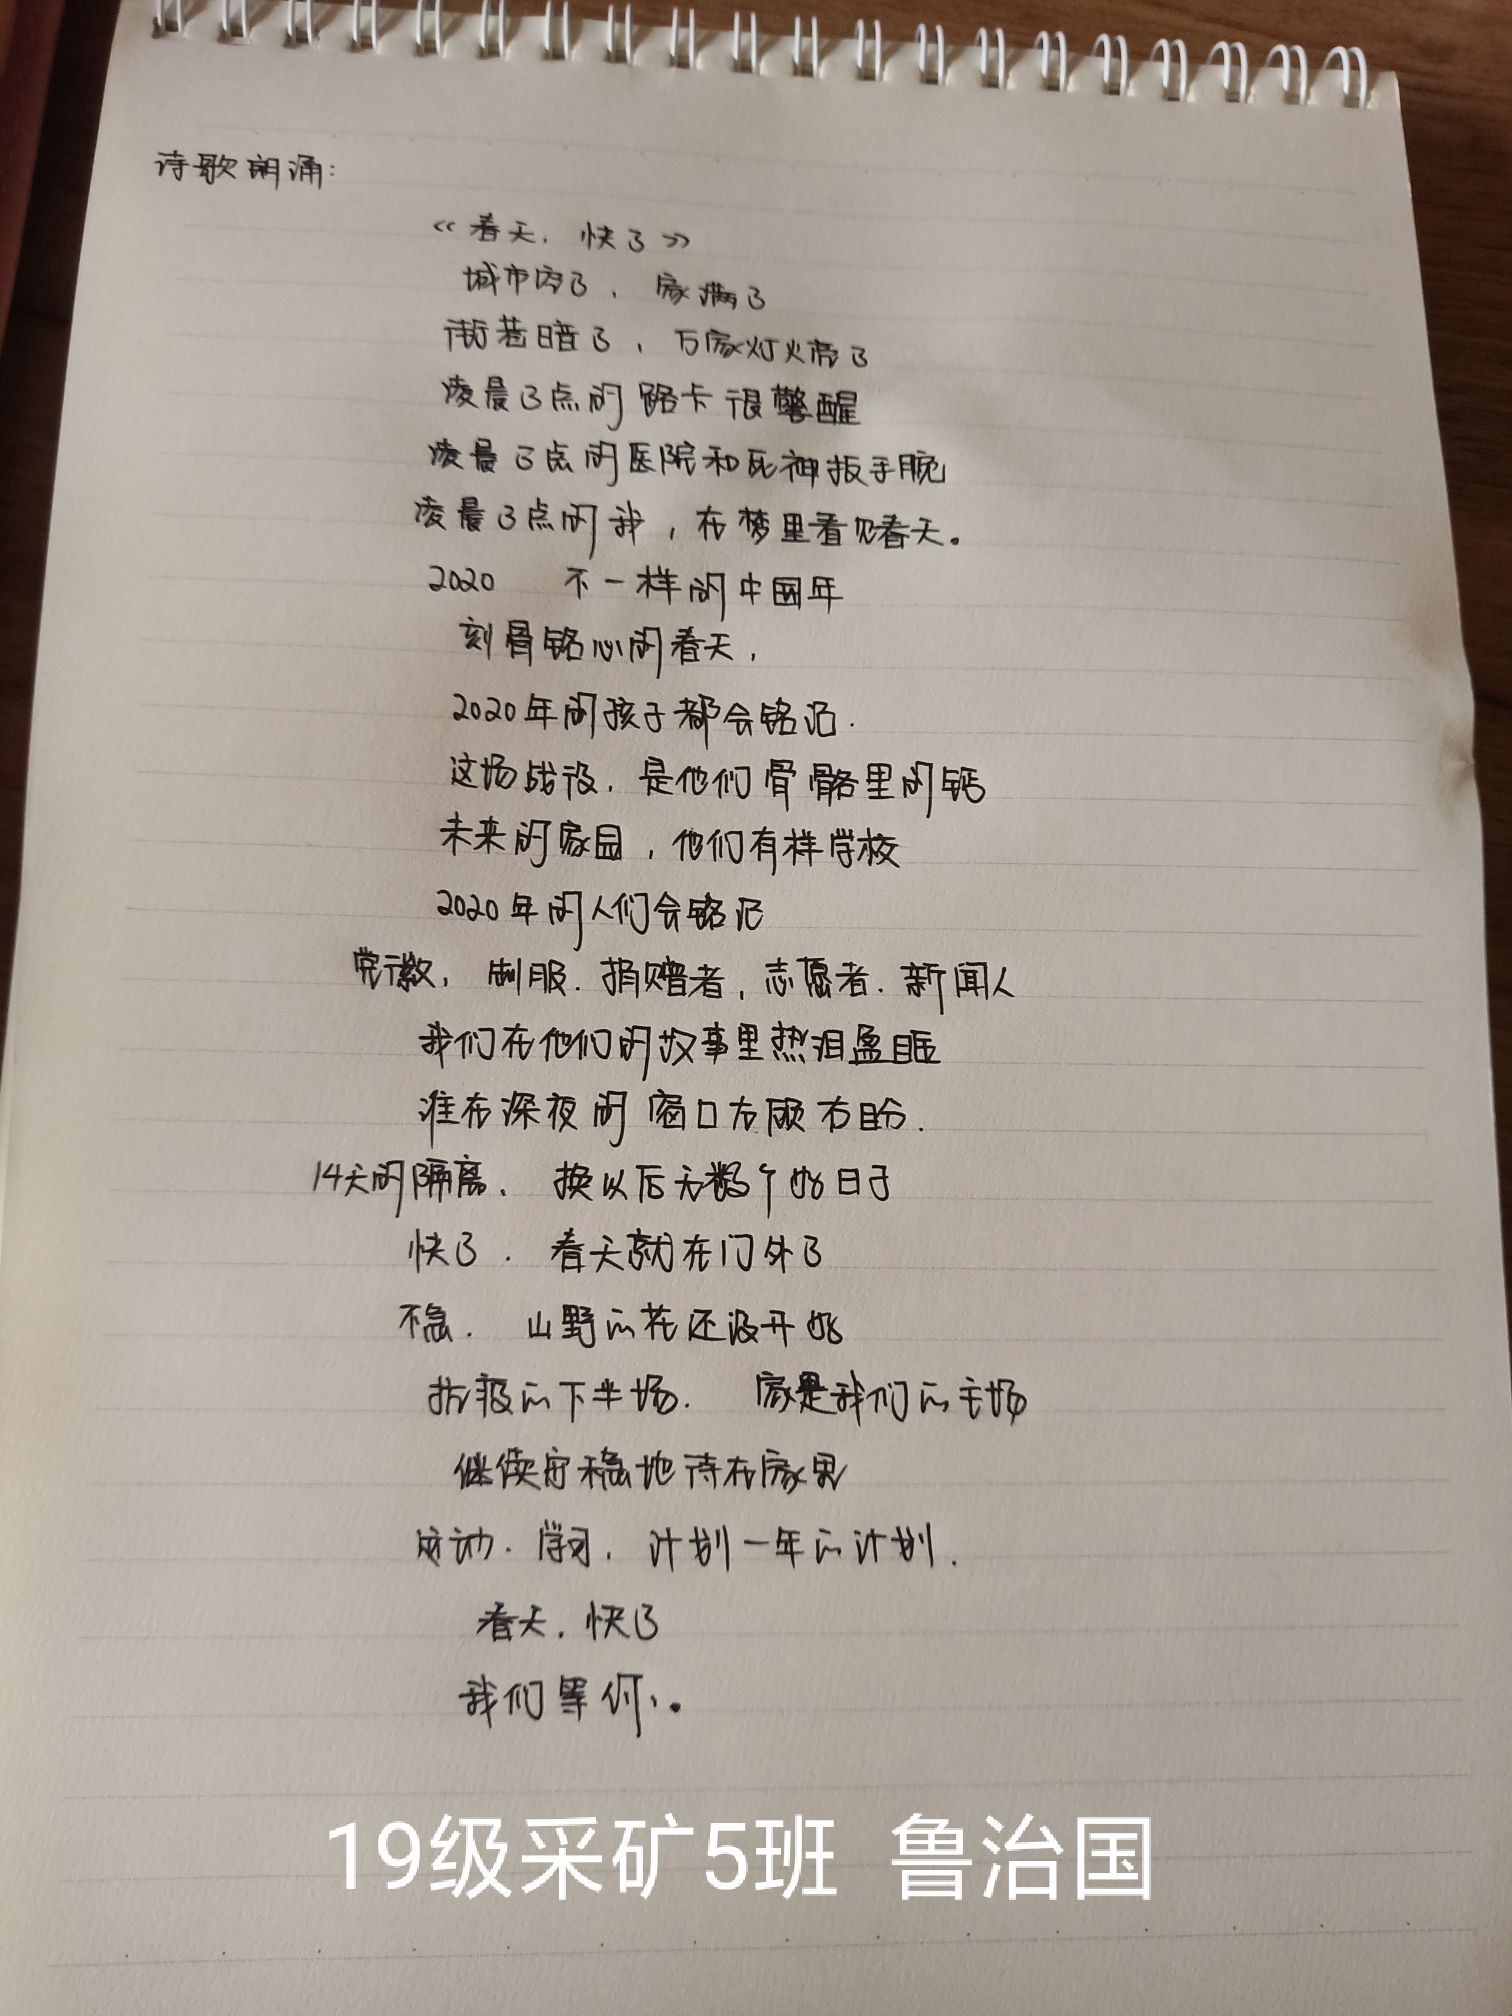 诗歌朗诵:
《春天,快了》
城市空了,家满了
街巷暗了,万家灯火亮了
凌晨3点的路卡很警醒
凌晨3点的医院和死神扳手腕
凌晨3点的我,在梦里看见春天。
2020 不一样的中国年
刻骨铭心的春天,
2020年的孩子都会铭记.
这场战役,是他们骨骼里的钙
未来的家园,他们有样学校
2020年的人们会铭记
党徽,制服.捐赠者,志愿者.新闻人
我们在他们的故事里热泪盈眶
谁在深夜的窗口左顾右盼.
14天的隔离,换以后无数个好日子
快了.春天就在门外了
不急.山野的花还没开好
战役的下半场.家是我们的主场
继续安稳地待在家里
运动.学习,计划一年的计划.
春天,快了
我们等你、。
19级采矿5班 鲁治国